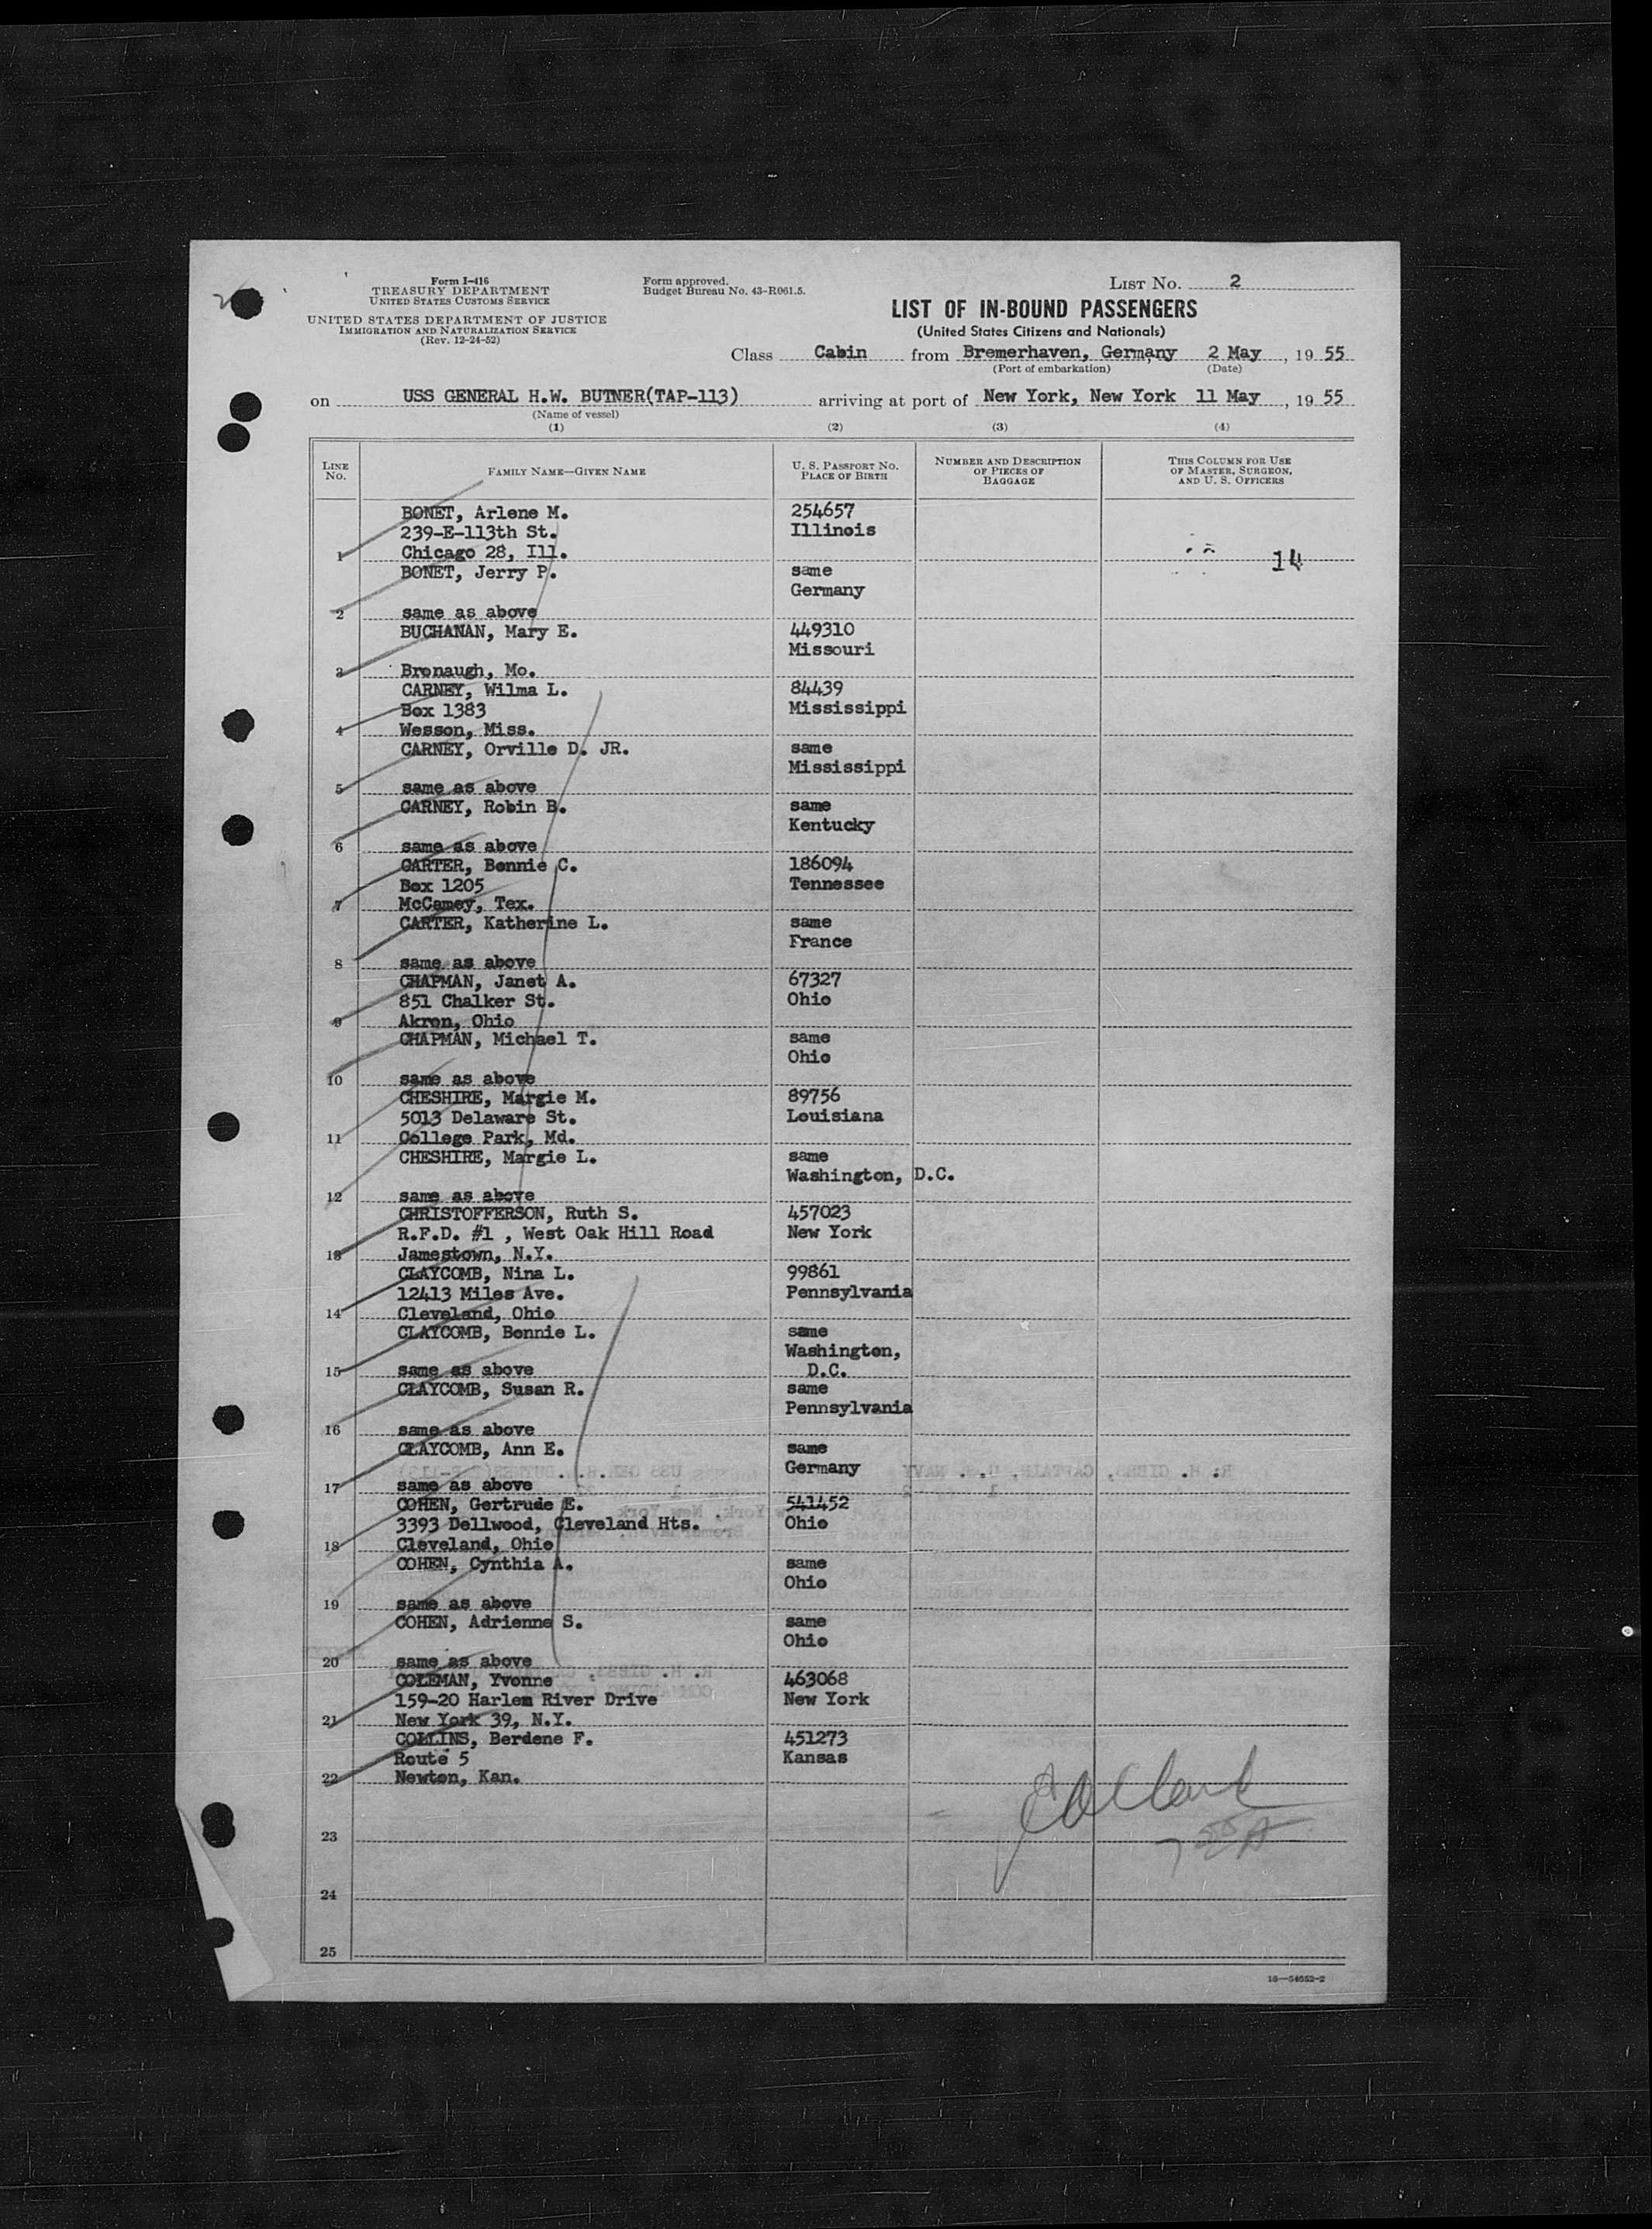 Form I-416
TREASURY DEPARTMENT
UNITED STATES CUSTOMS SERVICE
UNITED STATES DEPARTMENT OF JUSTICE
IMMIGRATION AND NATURALIZATION SERVICE
(Rev. 12-24-52)
Form approved.
Budget Bureau No. 43-R061.5.
LIST NO. 2
LIST OF IN-BOUND PASSENGERS
(United States Citizens and Nationals)
Class Cabin from Bremerhaven, Germany 2 May, 19 55
(Port of embarkation) (Date)
on USS GENERAL H.W. BUTNER(TAP-113) arriving at port of New York, New York 11 May, 19 55
(Name of vessel)
(1) (2) (3) (4)
LINE NO. FAMILY NAME—GIVEN NAME U. S. PASSPORT NO. PLACE OF BIRTH NUMBER AND DESCRIPTION OF PIECES OF BAGGAGE THIS COLUMN FOR USE OF MASTER, SURGEON, AND U. S. OFFICERS
BONET, Arlene M. 254657
239-E-113th St. Illinois
1 Chicago 28, Ill. 14
BONET, Jerry P. same
Germany
2 same as above
BUCHANAN, Mary E. 449310
Missouri
3 Bronaugh, Mo.
CARNEY, Wilma L. 84439
Box 1383 Mississippi
4 Wesson, Miss.
CARNEY, Orville D. JR. same
Mississippi
5 same as above
CARNEY, Robin B. same
Kentucky
6 same as above
CARTER, Bonnie C. 186094
Box 1205 Tennessee
7 McCamey, Tex.
CARTER, Katherine L. same
France
8 same as above
CHAPMAN, Janet A. 67327
851 Chalker St. Ohio
9 Akron, Ohio
CHAPMAN, Michael T. same
Ohio
10 same as above
CHESHIRE, Margie M. 89756
5013 Delaware St. Louisiana
11 College Park, Md.
CHESHIRE, Margie L. same
Washington, D.C.
12 same as above
CHRISTOFFERSON, Ruth S. 457023
R.F.D. #1 , West Oak Hill Road New York
13 Jamestown, N.Y.
CLAYCOMB, Nina L. 99861
12413 Miles Ave. Pennsylvania
14 Cleveland, Ohio
CLAYCOMB, Bonnie L. same
Washington,
15 same as above D.C.
CLAYCOMB, Susan R. same
Pennsylvania
16 same as above
CLAYCOMB, Ann E. same
Germany
17 same as above
COHEN, Gertrude E. 541452
3393 Dellwood, Cleveland Hts. Ohio
18 Cleveland, Ohio
COHEN, Cynthia A. same
Ohio
19 same as above
COHEN, Adrienne S. same
Ohio
20 same as above
COLEMAN, Yvonne 463068
159-20 Harlem River Drive New York
21 New York 39, N.Y.
COLLINS, Berdene F. 451273
Route 5 Kansas
22 Newton, Kan.
23
24
25
16—54652-2